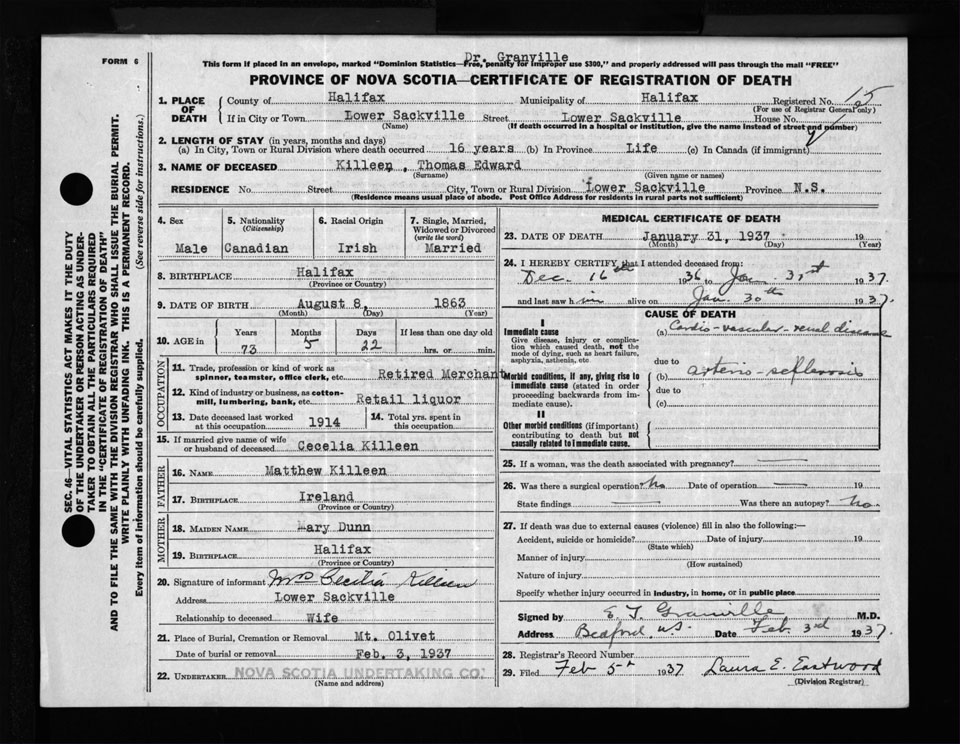 FORM 6
Dr. Granville
This form if placed in an envelope, marked "Dominion Statistics—Free, penalty for improper use $300," and properly addressed will pass through the mail "FREE"
PROVINCE OF NOVA SCOTIA—CERTIFICATE OF REGISTRATION OF DEATH
1. PLACE OF DEATH County of Halifax Municipality of Halifax Registered No. 15
(For use of Registrar General only)
If in City or Town Lower Sackville Street Lower Sackville House No.
(Name) (If death occurred in a hospital or institution, give the name instead of street and number)
2. LENGTH OF STAY (in years, months and days)
(a) In City, Town or Rural Division where death occurred 16 years (b) In Province Life (c) In Canada (if immigrant)
3. NAME OF DECEASED Killeen, Thomas Edward
(Surname) (Given name or names)
RESIDENCE No. Street City, Town or Rural Division Lower Sackville Province N.S.
(Residence means usual place of abode. Post Office Address for residents in rural parts not sufficient)
4. Sex 5. Nationality (Citizenship) 6. Racial Origin 7. Single, Married, Widowed or Divorced (write the word)
Male Canadian Irish Married
8. BIRTHPLACE Halifax
(Province or Country)
9. DATE OF BIRTH August 8, 1863
(Month) (Day) (Year)
10. AGE in Years Months Days If less than one day old
73 5 22 hrs. or min.
OCCUPATION
11. Trade, profession or kind of work as spinner, teamster, office clerk, etc. Retired Merchant
12. Kind of industry or business, as cotton-mill, lumbering, bank, etc. Retail liquor
13. Date deceased last worked at this occupation 1914 14. Total yrs. spent in this occupation
15. If married give name of wife or husband of deceased Cecelia Killeen
FATHER
16. NAME Matthew Killeen
17. BIRTHPLACE Ireland
(Province or Country)
MOTHER
18. MAIDEN NAME Mary Dunn
19. BIRTHPLACE Halifax
(Province or Country)
20. Signature of informant Mrs Cecilia Killeen
Address Lower Sackville
Relationship to deceased Wife
21. Place of Burial, Cremation or Removal Mt. Olivet
Date of burial or removal Feb. 3, 1937
22. UNDERTAKER NOVA SCOTIA UNDERTAKING CO.
(Name and address)
MEDICAL CERTIFICATE OF DEATH
23. DATE OF DEATH January 31, 1937 19
(Month) (Day) (Year)
24. I HEREBY CERTIFY that I attended deceased from:
Dec. 16th 1936 to Jan 31st 1937.
and last saw him alive on Jan. 30th 1937.
CAUSE OF DEATH
I
Immediate cause (a) Cardio-vascular-renal disease
Give disease, injury or complication which caused death, not the mode of dying, such as heart failure, asphyxia, asthenia, etc
due to
Morbid conditions, if any, giving rise to immediate cause (stated in order proceeding backwards from immediate cause).
(b) arterio-sclerosis
due to
(c)
II
Other morbid conditions (if important) contributing to death but not causally related to immediate cause.
25. If a woman, was the death associated with pregnancy?
26. Was there a surgical operation? No Date of operation 19
State findings Was there an autopsy? No.
27. If death was due to external causes (violence) fill in also the following:—
Accident, suicide or homicide? Date of injury 19
(State which)
Manner of injury
(How sustained)
Nature of injury
Specify whether injury occurred in industry, in home, or in public place
Signed by E. T. Granville M.D.
Address Bedford, N.S. Date Feb. 3rd 1937.
28. Registrar's Record Number
29. Filed Feb 5th 1937 Laura E. Eastwood
(Division Registrar)
SEC. 46—VITAL STATISTICS ACT MAKES IT THE DUTY
OF THE UNDERTAKER OR PERSON ACTING AS UNDER-
TAKER TO OBTAIN ALL THE PARTICULARS REQUIRED
IN THE "CERTIFICATE OF REGISTRATION OF DEATH"
AND TO FILE THE SAME WITH THE DIVISION REGISTRAR WHO SHALL ISSUE THE BURIAL PERMIT.
WRITE PLAINLY WITH UNFADING INK. THIS IS A PERMANENT RECORD.
Every item of information should be carefully supplied. (See reverse side for instructions.)